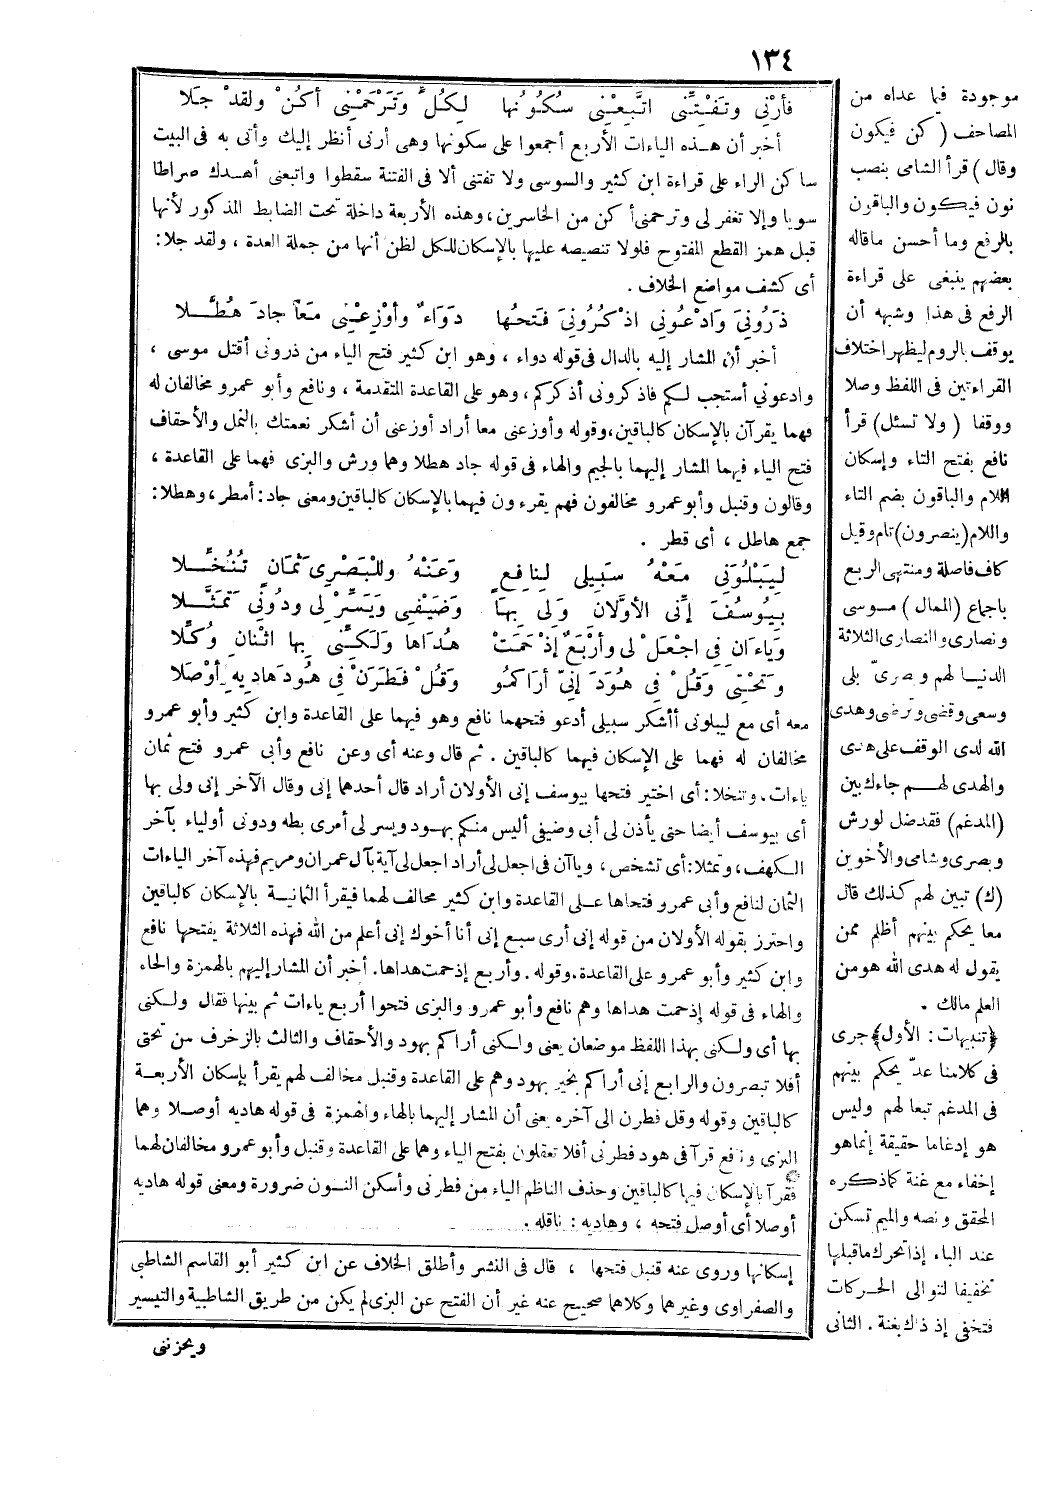 ١٣٤
فأرني وتفتني اتبعني سكونها لكل وترحمني أكن ولقد جلا
أخبر أن هذه الياءات الأربع أجمعوا على سكونها وهى أرنى أنظر إليك وأتى به فى البيت
ساكن الراء على قراءة ابن كثير والسوسى ولا تفتنى ألا فى الفتنة سقطوا واتبعنى أهدك صراطا
سويا وإلا تغفر لى وترحمنى أكن من الخاسرين، وهذه الأربعة داخلة تحت الضابط المذكور لأنها
قبل همز القطع المفتوح فلولا تنصيصه عليها بالإسكان للكل لظن أنها من جملة العدة ، ولقد جلا:
أى كشف مواضع الخلاف .
ذَرُونِىَ وَادْعُونِى اذْكُرُونِىَ فَتْحُهَا دَوَاءٌ وأوْزِعْنِى مَعاً جادَ هُطَّلا
أخبر أن المشار إليه بالدال فى قوله دواء ، وهو ابن كثير فتح الياء من ذرونى أقتل موسى ،
وادعوني أستجب لكم فاذكرونى أذكركم، وهو على القاعدة المتقدمة ، ونافع وأبو عمرو مخالفان له
فهما يقرآن بالإسكان كالباقين، وقوله وأوزعنى معا أراد أوزعنى أن أشكر نعمتك بالنمل والأحقاف
فتح الياء فيهما المشار إليهما بالجيم والهاء فى قوله جاد هطلا وهما ورش والبزى فهما على القاعدة ،
وقالون وقنبل وأبو عمرو مخالفون فهم يقرءون فيهما بالإسكان كالباقين ومعنى جاد: أمطر، وهطلا:
جمع هاطل ، أى قطر .
لِيَبْلُوَنِى مَعْهُ سَبِيلِى لِنَافِعٍ وَعَنْهُ وللْبَصْرِى ثَمَانٍ تُنُخِّلا
بِيُوسُفَ إنِّى الأوَّلانِ وَلِى بِهَا وَضَيْفِى وَيَسِّرْ لِى وَدُونِى تَمَثَّلا
وَيَاءَانِ فى اجْعَلْ لِى وأرْبَعٌ إذْ حَمَتْ هُدَاها ولَكِنِّى بِها اثْنانِ وُكِّلا
وَتَحْتِى وَقُلْ فِى هُودَ إنِّى أرَاكمُو وَقُلْ فَطَرَنْ فى هُودَ هَادِيهِ أوْصَلا
معه أى مع ليبلونى أأشكر سبيلى أدعو فتحهما نافع وهو فيهما على القاعدة وابن كثير وأبو عمرو
مخالفان له فهما على الإسكان فيهما كالباقين . ثم قال وعنه أى وعن نافع وأبى عمرو فتح ثمان
ياءات. وتنخلا: أى اختير فتحها بيوسف إنى الأولان أراد قال أحدهما إنى وقال الآخر إنى ولى بها
أى بيوسف أيضا حتى يأذن لى أبى وضيفى أليس منكم بهود ويسر لى أمرى بطه ودونى أولياء بآخر
الكهف، وتمثلا: أى تشخص ، وياآن فى اجعل لى أراد اجعل لى آية بآل عمران ومريم فهذه آخر الياءات
الثمان لنافع وأبى عمرو فتحاها على القاعدة وابن كثير مخالف لهما فيقرأ الثمانية بالإسكان كالباقين
واحترز بقوله الأولان من قوله إنى أرى سبع إنى أنا أخوك إنى أعلم من الله فهذه الثلاثة يفتحها نافع
وابن كثير وأبو عمرو على القاعدة. وقوله . وأربع إذ حمت هداها. أخبر أن المشار إليهم بالهمزة والحاء
والهاء فى قوله إذ حمت هداها وهم نافع وأبو عمرو والبزى فتحوا أربع ياءات ثم بينها فقال ولكنى
بها أى ولكنى بهذا اللفظ موضعان يعنى ولكنى أراكم بهود والأحقاف والثالث بالزخرف من تحتى
أفلا تبصرون والرابع إنى أراكم بخير بهود وهم على القاعدة وقنبل مخالف لهم يقرأ بإسكان الأربعة
كالباقين وقوله وقل فطرن الى آخره يعنى أن المشار إليهما بالهاء والهمزة فى قوله هاديه أوصلا وهما
البزى ونافع قرآ فى هود فطرنى أفلا تعقلون بفتح الياء وهما على القاعدة وقنبل وأبو عمرو مخالفان لهما
فقرآ بالإسكان فيها كالباقين وحذف الناظم الياء من فطرنى وأسكن النون ضرورة ومعنى قوله هاديه
أوصلا أى أوصل فتحه ، وهاديه : ناقله .
إسكانها وروى عنه قنبل فتحها ، قال فى النشر وأطلق الخلاف عن ابن كثير أبو القاسم الشاطبى
والصفراوى وغيرهما وكلاهما صحيح عنه غير أن الفتح عن البزى لم يكن من طريق الشاطبية والتيسير
ويحزننى
موجودة فيما عداه من
المصاحف (كن فيكون
وقال) قرأ الشامى بنصب
نون فيكون والباقون
بالرفع وما أحسن ماقاله
بعضهم ينبغى على قراءة
الرفع فى هذا وشبهه أن
يوقف بالروم ليظهر اختلاف
القراءتين فى اللفظ وصلا
ووقفا (ولا تسئل) قرأ
نافع بفتح التاء وإسكان
اللام والباقون بضم التاء
واللام (ينصرون) تام وقيل
كاف فاصلة ومنتهى الربع
باجماع (الممال) موسى
ونصارى والنصارى الثلاثة
الدنيا لهم وبصرىّ بلى
وسعى وقضى وترضى وهدى
الله لدى الوقف على هدى
والهدى لهم جاءك بين
(المدغم) فقد ضل لورش
وبصرى وشامى والأخوين
(ك) تبين لهم كذلك قال
معا يحكم بينهم أظلم ممن
يقول له هدى الله هو من
العلم مالك .
﴿تنبيهات: الأول﴾ جرى
فى كلامنا عدّ يحكم بينهم
فى المدغم تبعا لهم وليس
هو إدغاما حقيقة إنما هو
إخفاء مع غنة كما ذكره
المحقق ونصه والميم تسكن
عند الباء إذا تحرك ماقبلها
تخفيفا لتوالى الحركات
فتخفى إذ ذاك بغنة . الثانى